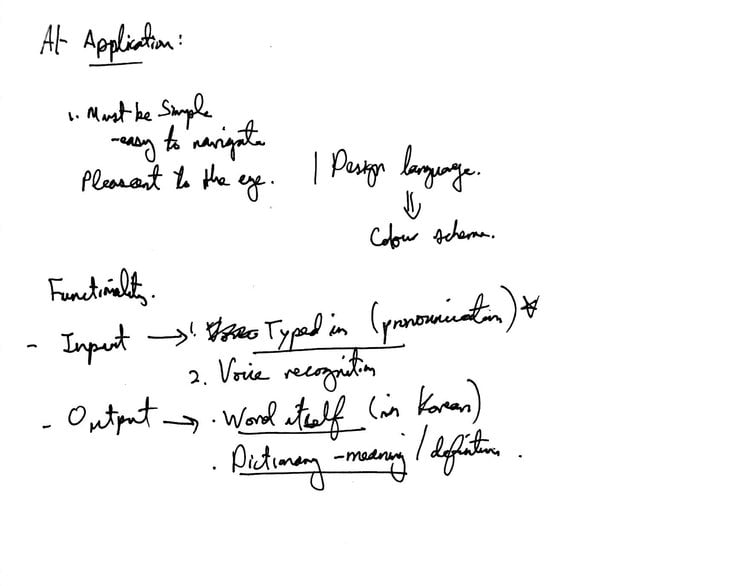 AI- Application:
1. Must be Simple
-easy to navigate
Pleasant to the eye. | Design language.
⇓
Colour scheme.
Functionality.
- Input → 1. Typed in (pronounication) ☆
2. Voice recognition
- Output → . Word itself (in Korean)
. Dictionary - meaning / definition .